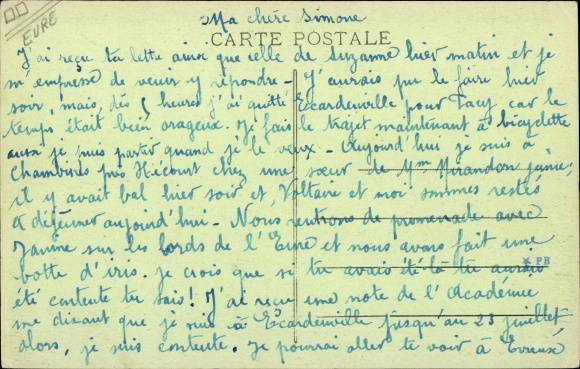 EURE
Ma chère Simone
CARTE POSTALE
J'ai reçu ta lettre ainsi que celle de Suzanne hier matin et je
m'empresse de venir y répondre - J'aurais pu le faire hier
soir, mais, dès 5 heures j'ai quitté Ecardenville pour Pacy car le
temps était bien orageux. Je fais le trajet maintenant à bicyclette
aussi je puis partir quand je le veux - Aujourd'hui je suis à
Chambines près Hécourt chez une sœur de Mme Mirandon, junie,
il y avait bal hier soir et, Voltaire et moi sommes restés
à déjeuner aujourd'hui - Nous rentrons de promenade avec
Janine sur les bords de l'Eure et nous avons fait une
botte d'iris. je crois que si tu avais été là tu aurais
PB
été contente tu sais! J'ai reçu une note de l'Académie
me disant que je suis à Ecardenville jusqu'au 23 juillet
alors, je suis contente. Je pourrai aller te voir à Evreux